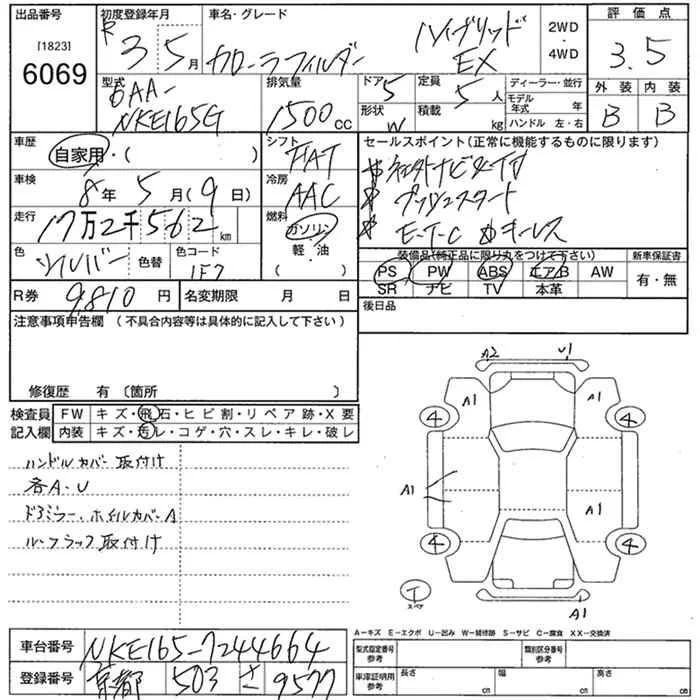 出品番号
[1823]
6069
初度登録年月
R 3 5月
車名・グレード
ハイブリッド
カローラフィルダー
EX
2WD
・
4WD
評価点
3.5
外装 内装
B B
型式
6AA-
NKE165G
排気量
1500 cc
ドア 5
定員 5 人
形状 W
積載 kg
ディーラー・並行
モデル年式 年
ハンドル 左・右
車歴
自家用・( )
シフト
FAT
セールスポイント(正常に機能するものに限ります)
ナビ
プッシュスタート
E-T-C キーレス
車検
8年 5月(9日)
冷房
AAC
走行
17万2千562 km
燃料
ガソリン
軽・油
( )
色
シルバー
色替
色コード
1F7
装備品(純正品に限り丸をつけて下さい)
PS PW ABS エアB AW
SR ナビ TV 本革
新車保証書
有・無
R券 9,810 円
名変期限 月 日
後日品
注意事項申告欄(不具合内容等は具体的に記入して下さい)
修復歴 有〔箇所 〕
検査員 FW キズ・飛石・ヒビ割・リペア跡・X要
記入欄 内装 キズ・汚レ・コゲ・穴・スレ・キレ・破レ
ハンドルカバー取付け
各A・U
ドアミラー、ホイルカバーA
ルーフラック取付け
A2 U1
A1 A1
4 4
A1 A1
4 4
T
スペア
A1
A-キズ E-エクボ U-凹み W-補修跡 S-サビ C-腐食 XX-交換済
車台番号 NKE165-7244664
登録番号 京都 503 さ 9577
型式指定番号
参考
類別区分番号
参考
車庫証明用
参考
長さ cm
幅 cm
高さ cm